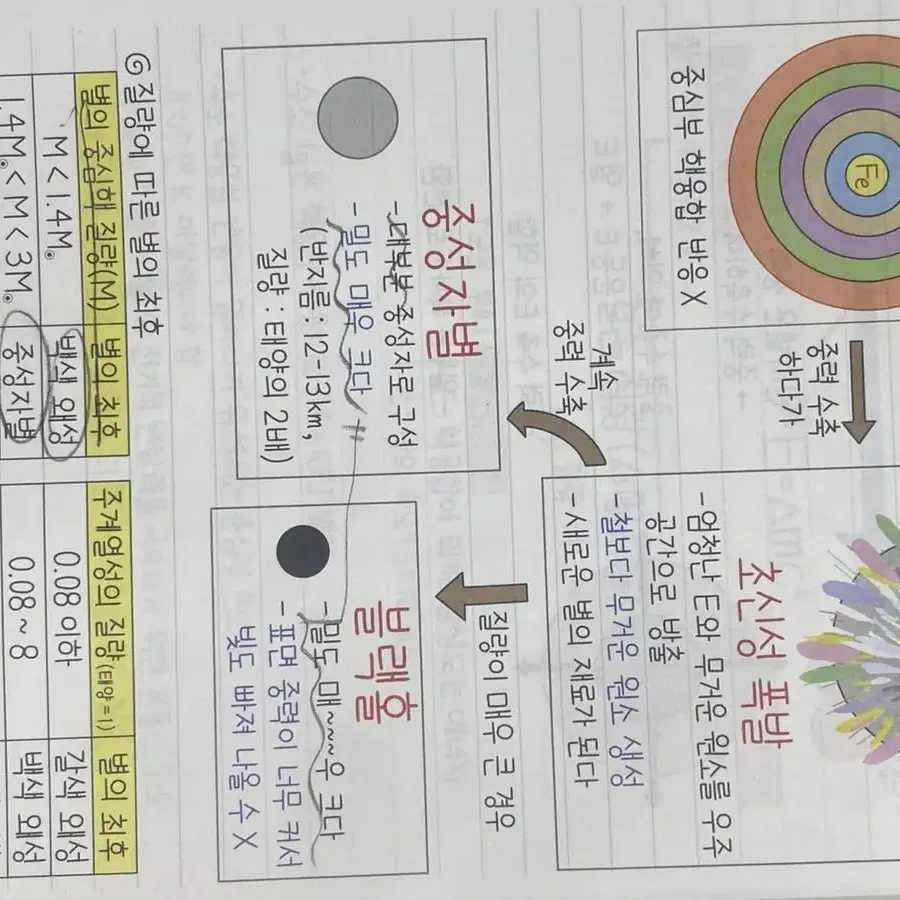 Fe
중심부 핵융합 반응 X
중력 수축
하다가
초신성 폭발
-엄청난 E와 무거운 원소를 우주
공간으로 방출
-철보다 무거운 원소 생성
-새로운 별의 재료가 된다
계속
중력 수축
질량이 매우 큰 경우
중성자별
-대부분 중성자로 구성
- 밀도 매우 크다
(반지름 : 12-13km,
질량 : 태양의 2배)
블랙홀
-밀도 매~~~우 크다
- 표면 중력이 너무 커서
빛도 빠져 나올 수 X
⑥ 질량에 따른 별의 최후
별의 중심핵 질량(M) 별의 최후
M < 1.4M⊙ 백색 왜성
1.4M⊙ < M < 3M⊙ 중성자별
주계열성의 질량(태양 = 1) 별의 최후
0.08 이하 갈색 왜성
0.08 ~ 8 백색 왜성